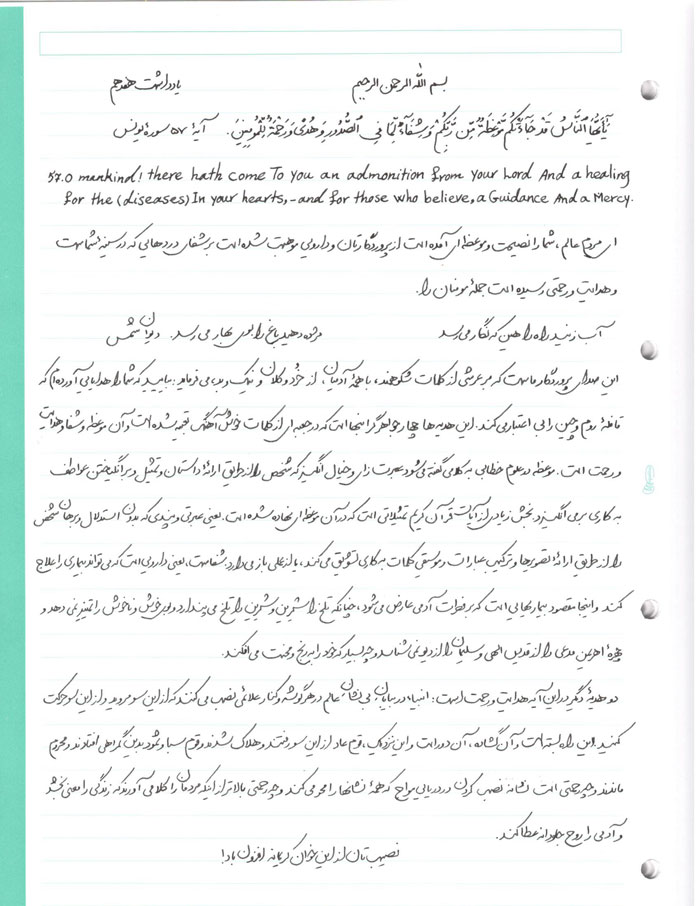 بسم الله الرحمن الرحیم یادداشت هفدهم
يَا أَيُّهَا النَّاسُ قَدْ جَاءَتْكُمْ مَوْعِظَةٌ مِنْ رَبِّكُمْ وَ شِفَاءٌ لِمَا فِي الصُّدُورِ وَ هُدًى وَ رَحْمَةٌ لِلْمُؤْمِنِينَ. آیهٔ ۵۷ سورهٔ یونس
57.O mankind! there hath come To you an admonition from your Lord And a healing
for the (diseases) In your hearts,-and for those who believe, a Guidance And a Mercy.
ای مردم عالم، شما را نصیحت و موعظه‌ای آمده است از پروردگارتان و دارویی موهبت شده است بر شفای دردهایی که در سینهٔ شماست
و هدایت و رحمتی رسیده است جملهٔ مومنان را.
آب زنید راه را هین که نگار می‌رسد مژده دهید باغ را بوی بهار می‌رسد. دیوان شمس
این صدای پروردگار ماست که بر عرشی از کلمات شکوهمند، با همهٔ آدمیان، از خُرد و کلان و نیک و بد، می‌فرماید: بیایید که شما را هدایایی آورده‌ام که
قافلهٔ روم و چین را بی اعتبار می‌کند. این هدیه‌ها چهار جواهر گرانبهاست که در جعبه‌ای از کلمات خوش آهنگ تعبیه شده است و آن موعظه و شفا و هدایت
و رحمت است. موعظه در علوم خطابی به کلامی گفته می‌شود عبرت زا و خیال انگیز که شخص را از طریق ارائهٔ داستان و تمثیل و برانگیختن عواطف
به کاری برمی‌انگیزد. بخش زیادی از آیات قرآن کریم تمثیلاتی است که در آن موعظه‌ای نهاده شده است. یعنی عبرتی و پندی که بدون استدلال و برهان شخص
را از طریق ارائهٔ تصویرها و ترکیب عبارات و موسیقی کلمات به کاری تشویق می‌کند، یا از عملی باز می‌دارد. شفاست، یعنی دارویی است که می‌تواند بیماری را علاج
کند و اینجا مقصود بیماریهایی است که بر فطرت آدمی عارض می‌شود، چنانکه تلخ را شیرین و شیرین را تلخ می‌پندارد و بوی خوش و ناخوش را تمییز نمی‌دهد و
چهرهٔ اهرمن مدعی را از قدیس الهی و سلیمان را از دیو نمی‌شناسد و چه بسیار که خود را به رنج و محنت می‌افکند.
دو هدیهٔ دگر در این آیه هدایت و رحمت است: انبیاء در بیابان بی نشان عالم در هر گوشه و کنار علائمی نصب می‌کنند که از این سو مروید و از این سو حرکت
کنید. این راه بسته است و آن گشاده، آن دور است و این نزدیک، قوم عاد از این سو رفتند و هلاک شدند و قوم سبا و ثمود بدین گمراهی افتادند و محروم
ماندند و چه رحمتی است نشانه نصب کردن در دریایی مواج که همهٔ نشانها را محو می‌کند و چه رحمتی بالاتر از اینکه مردمان را کلامی آورند که زندگی را معنی بخشد
و آدمی را روح جاودانه عطا کند.
نصیب‌تان از این خوان کریمانه افزون باد!